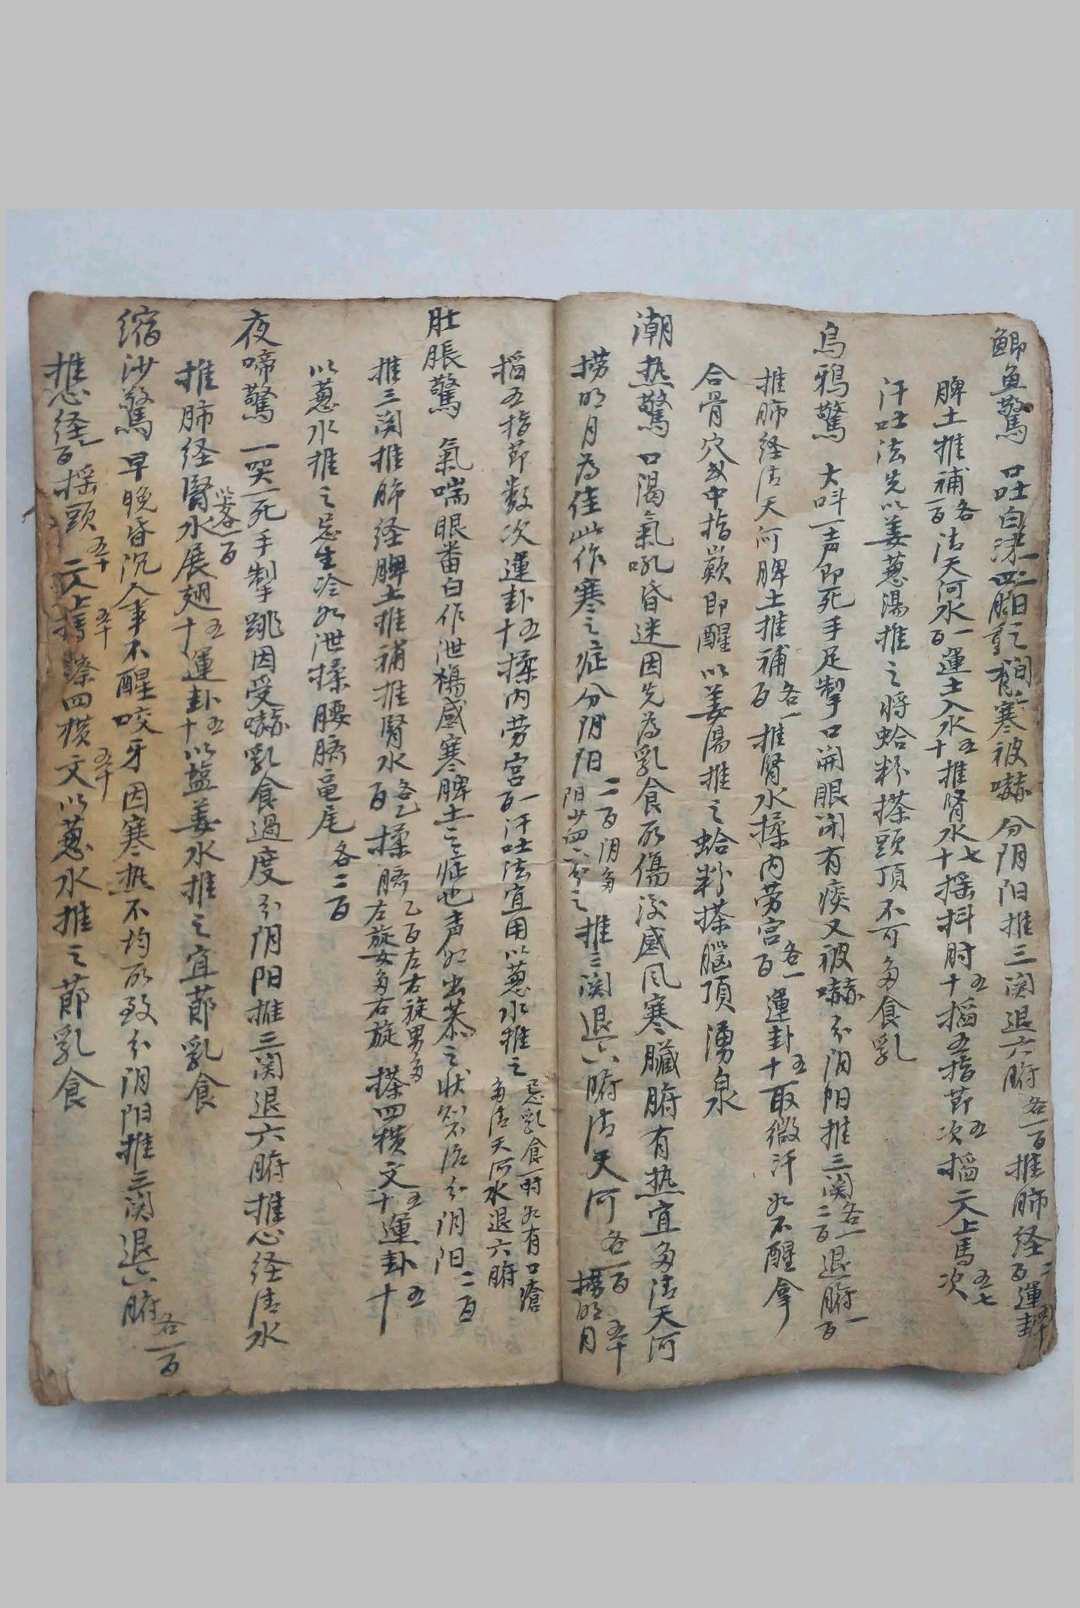 鯽魚驚 口吐白沫四肢 寒被嚇 分阴阳推三関退六腑各一百推肺経二百運卦五十
脾土推補各一百清天河水一百運土入水五十推腎水七十摇抖肘五十搯五指節五次搯二人上馬七次
汗吐法先以姜蔥湯推之將蛤粉搽頭頂不可多食乳
烏鴉驚 大呌一声即死手足掣口開眼闭有痰又被嚇分阴阳推三関各一二百退腑一百
推肺経清天河脾土推補各一百推腎水揉内劳宫各一百運卦五十取微汗如不醒拿
合骨穴或中指巅即醒以姜湯推之蛤粉搽腦頂湧泉
潮热驚 口渴氣吼昏迷因先為乳食所傷後感风寒臟腑有热宜多清天河
捞明月為佳此作寒之症分阴阳二百阴多阳少 推三関退六腑清天河各一百捞明月五十
搯五指節数次運卦五十揉内劳宫一百汗吐法宜用以蔥水推之忌乳食一時如有口瘡多清天河水退六腑
肚脹驚 氣喘眼番白作泄 感寒脾土之症也声如出恭之状 治分阴阳二百
推三関推肺経脾土推補推腎水各乙百揉臍乙百左右旋男多左旋女多右旋搽四横文五十運卦五十
以蔥水推之忌生冷如泄揉腰臍龟尾各二百
夜啼驚 一哭一死手掣跳因受嚇乳食過度分阴阳推三関退六腑推心経清水
推肺経腎水以上各一百展翅五十運卦五十以盐姜水推之宜節乳食
缩沙驚 早晚昏沉人事不醒咬牙因寒热不均所致分阴阳推三関退六腑各一百
推心経一百摇頭五十二人上馬五十擦四横文五十以蔥水推之節乳食